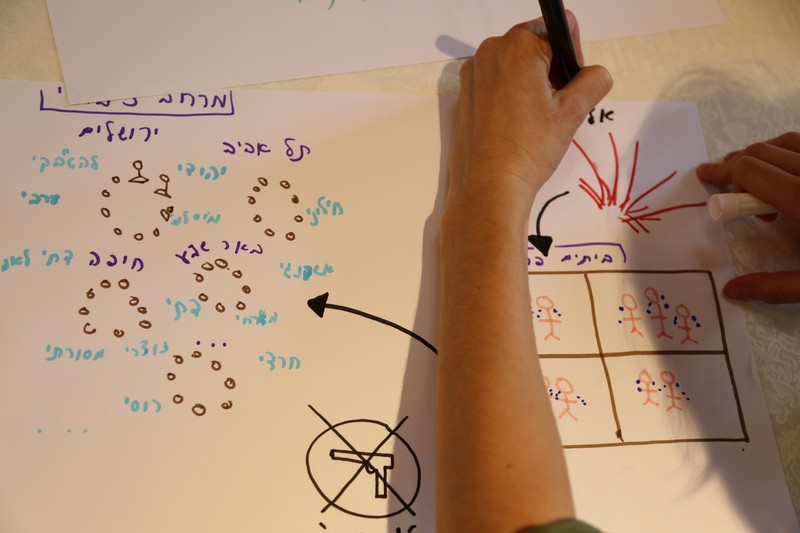 מרחב
ירושלים
תל אביב
להט"בקי
יהודי
ערבי
מוסלמי
חילוני
חיפה
באר שבע
דתי לאומי
אשכנזי
דתי
מזרחי
מסורתי
נוצרי
...
חרדי
רוסי
...
אל
בתים